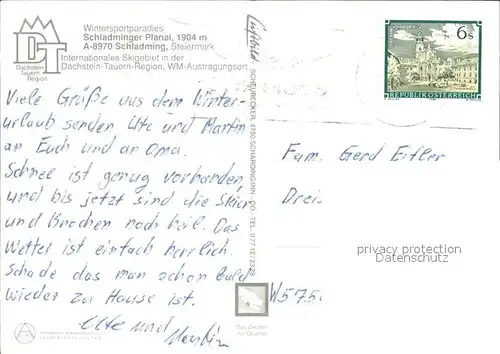 Wintersportparadies
Schladminger Planai, 1904 m
A-8970 Schladming, Steiermark
Internationales Skigebiet in der
Dachstein-Tauern-Region, WM-Austragungsort
DT
Dachstein
Tauern
Region
Viele Grüße aus dem Winter-
urlaub senden Ute und Martin
an Euch und an Oma.
Schnee ist genug vorhanden,
und bis jetzt sind die Skier
und Knochen noch heil. Das
Wetter ist einfach herrlich.
Schade das man schon bald
wieder zu Hause ist.
Ute und Martin
Luftbild
6s
REPUBLIK ÖSTERREICH
Fam. Gerd
Drei
privacy protection
Datenschutz
W575
Das Zeichen
für Qualität